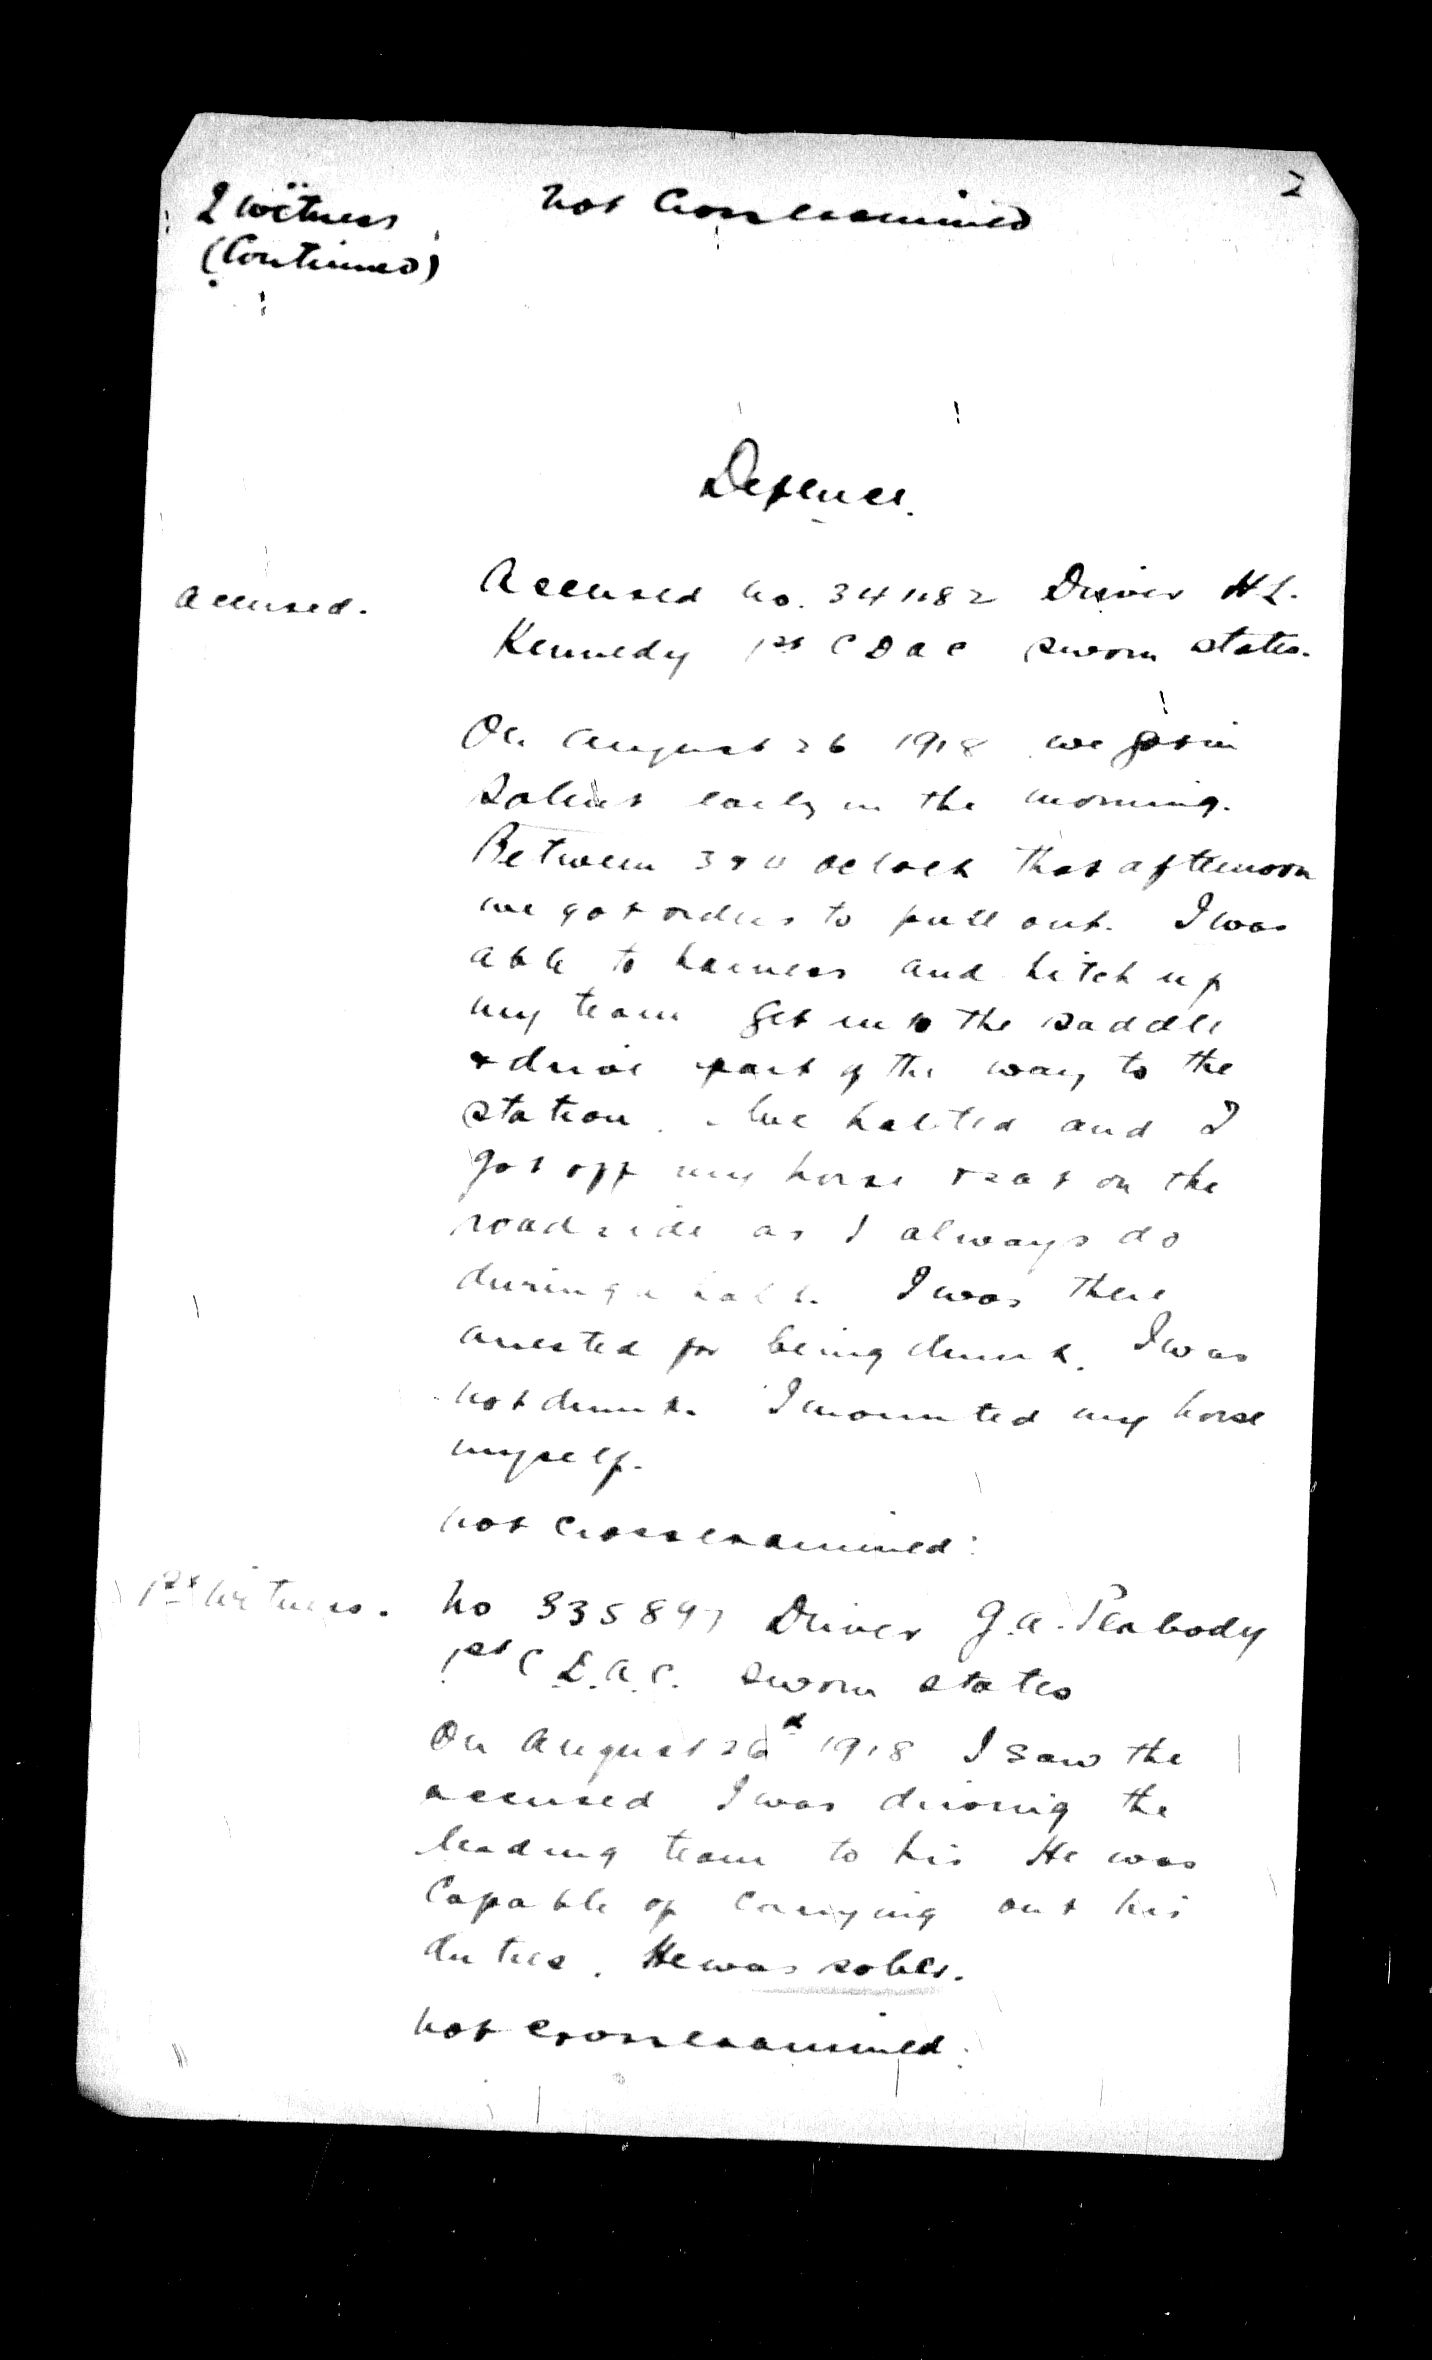 2
2 witness
(Continued)
not Cross examined
Defence.
Accused.
Accused no. 341182 Driver H L.
Kennedy 1st C D A C sworn states.
On August 26 1918 we got in
early in the morning.
Between 3 & 4 oclock that afternoon
we got orders to pull out. I was
able to harness and hitch up
my team get into the saddle
& drive part of the way to the
station. We halted and I
got off my horse & sat on the
roadside as I always do
during a halt. I was there
arrested for being drunk. I was
not drunk. I mounted my horse
myself.
not cross examined:
1st Witness.
No 335897 Driver G.A. Peabody
1st C D.A.C. sworn states
On August 26th 1918 I saw the
accused I was driving the
leading team to his He was
Capable of Carrying out his
duties. He was sober.
not cross examined: